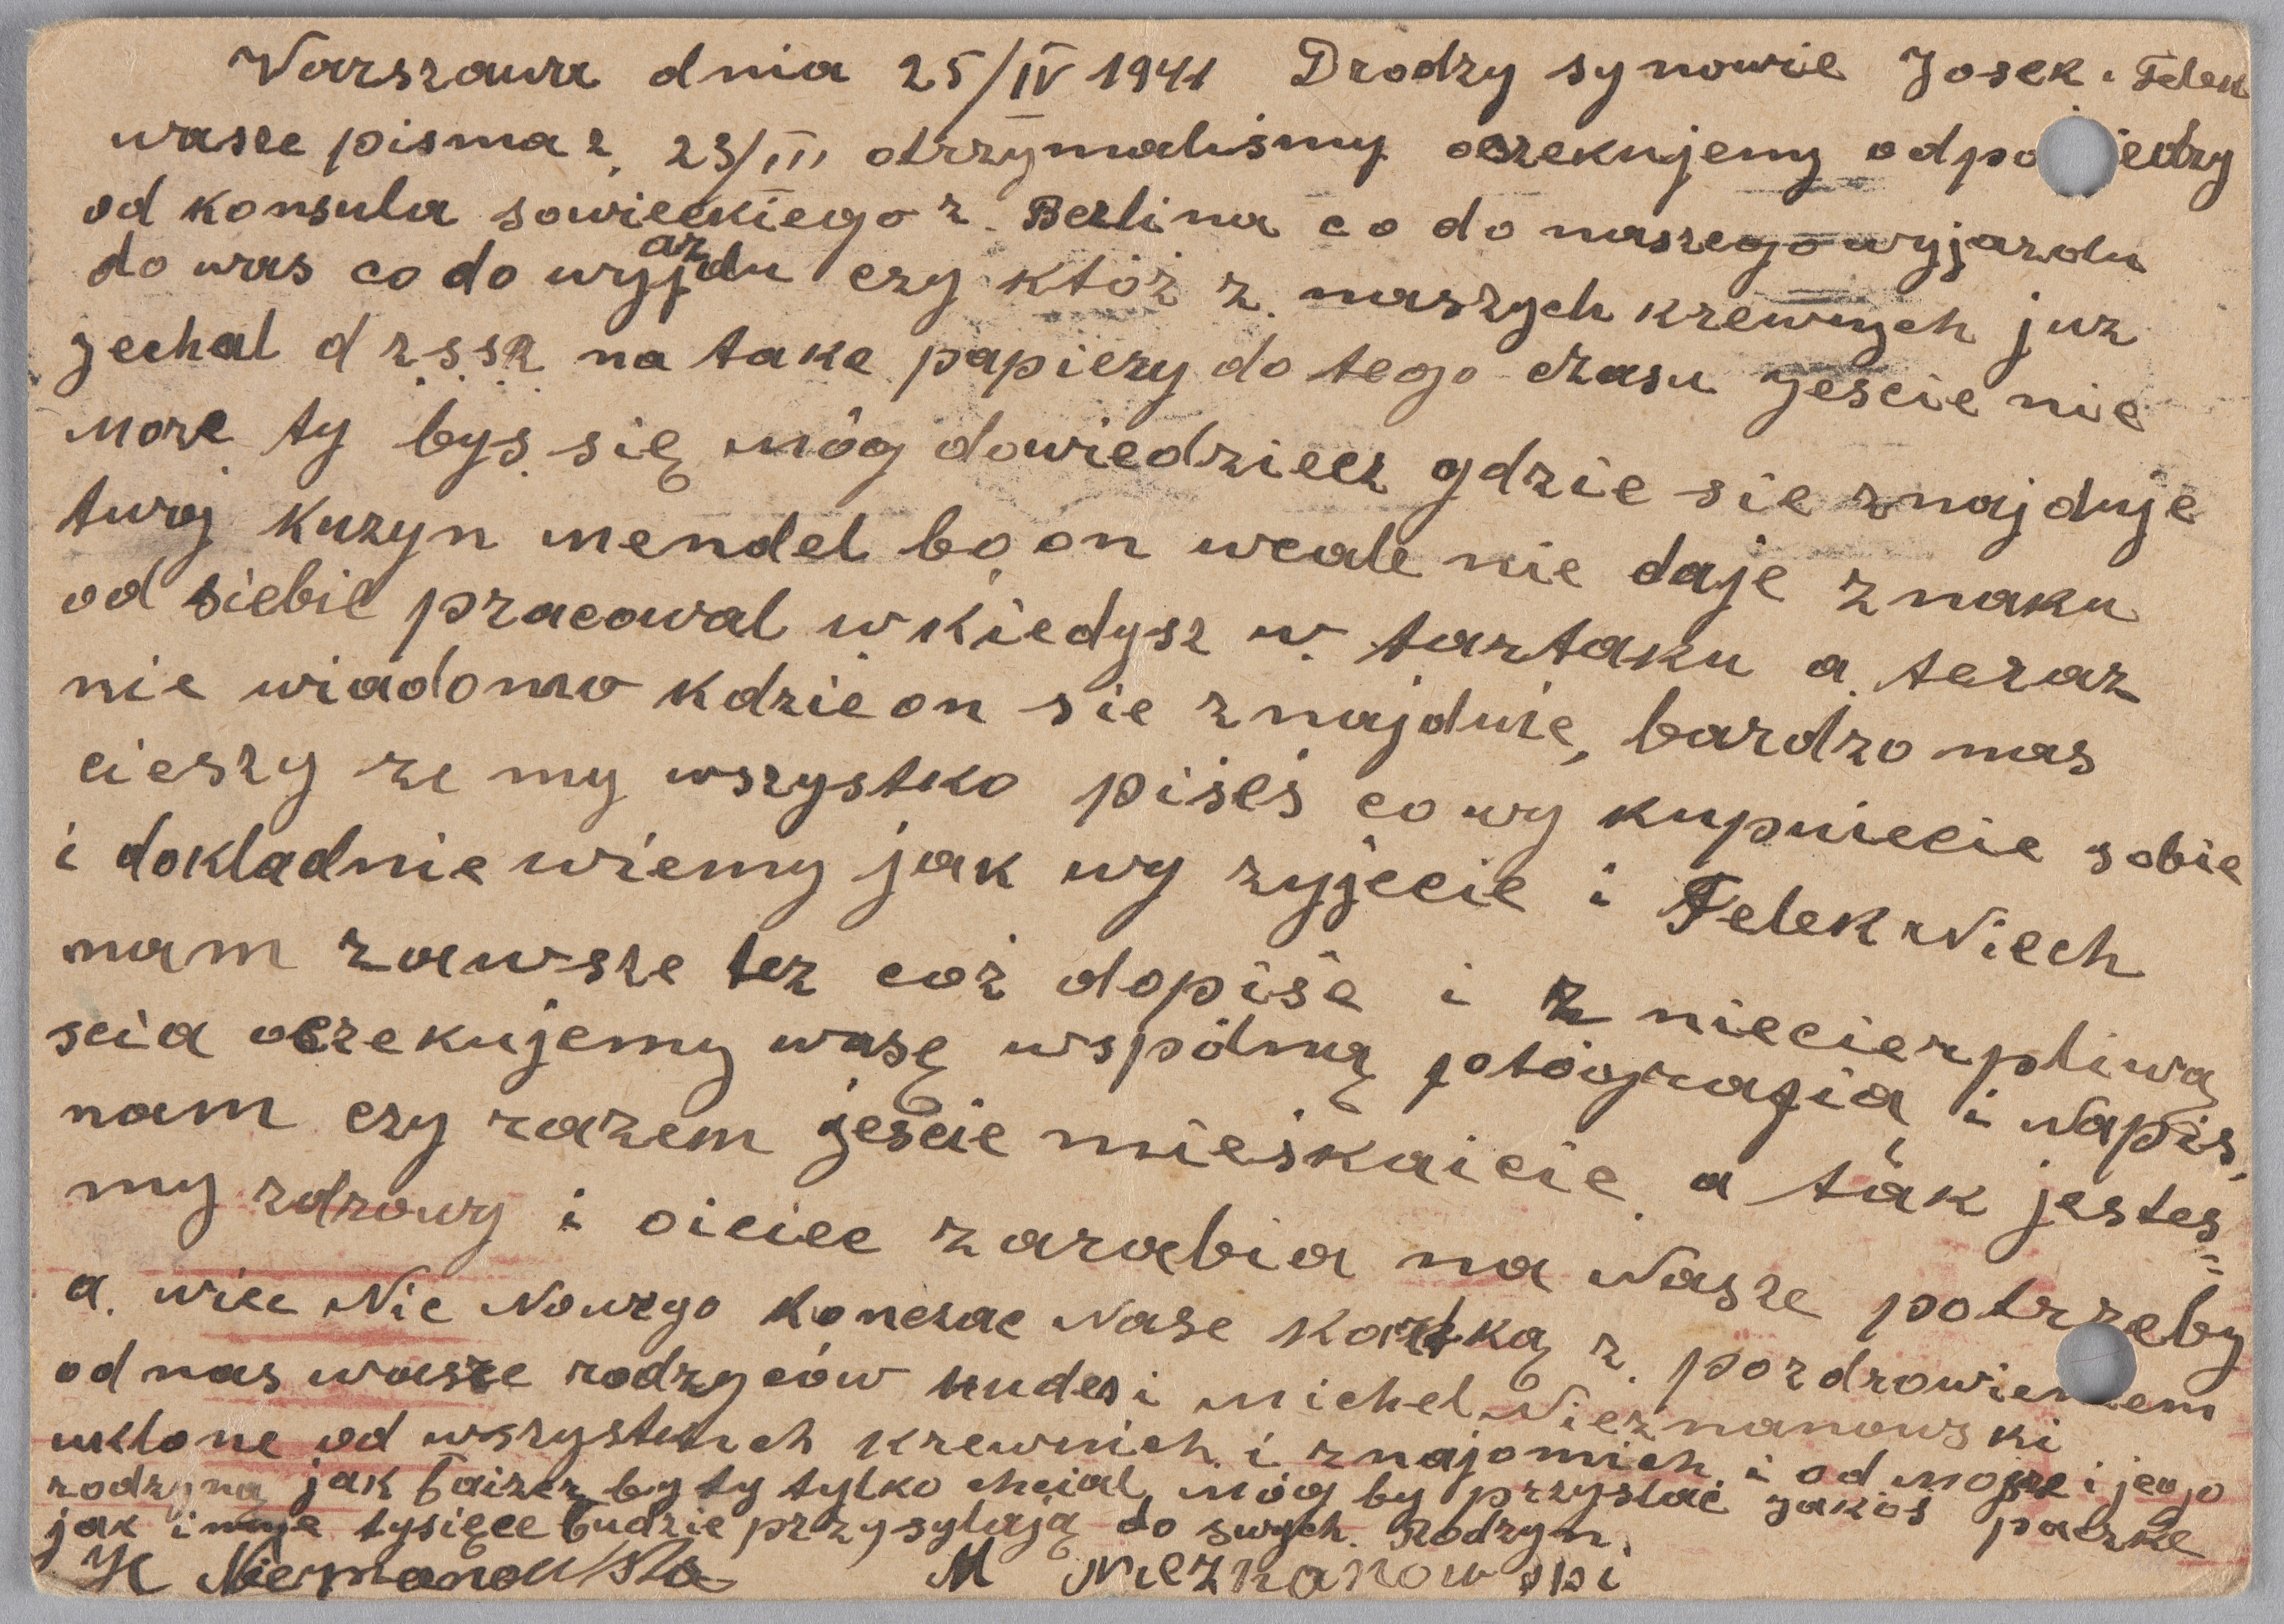 Warszawa dnia 25/IV 1941 Drodzy synowie Josek i Felek
wasze pisma z. 23/III otrzymaliśmy oczekujemy odpo iedzy
od konsula sowieckiego z. Berlina co do naszego wyjazdu
do was co do wyjazdu czy któż z. naszych krewnych juz
jechal d z.s.s.r na take papiery do tego czasu jescie nie
more ty byś się móg dowiedziecz gdzie sie znajduje
twoj kuzyn mendel bo on wcale nie daje znaku
od siebie pracowal w kiedysz w. tartaku a teraz
nie wiadomo kdzie on sie znajduie, bardzo nas
cieszy ze my wszystko pises co wy kupuiecie sobie
i dokladnie wiemy jak wy zyjecie i Felek Niech
nam zawsze tez coż dopise i z niecierpliwą
scia oczekujemy wasę wspólną fotografia i Napis,
nam czy razem jescie mieskaicie. a tak jestes=
my zdrowy i oiciec zarabia na Nasze potrzeby
a. wiec Nic Nowego konczac Nase kartką z. pozdrowieniem
od nas wasze rodzyców Hudes i Michel Nieznanowski
uklone od wszystkich krewnich i znajomich. i od mojse i jego
rodzyną jak faizer by ty tylko chcial móg by przyslać jakoś paczke
jak inuje tysięce ludzie przysylają do swych. Rodzyn.
H Nieznanowska M Nieznanowski